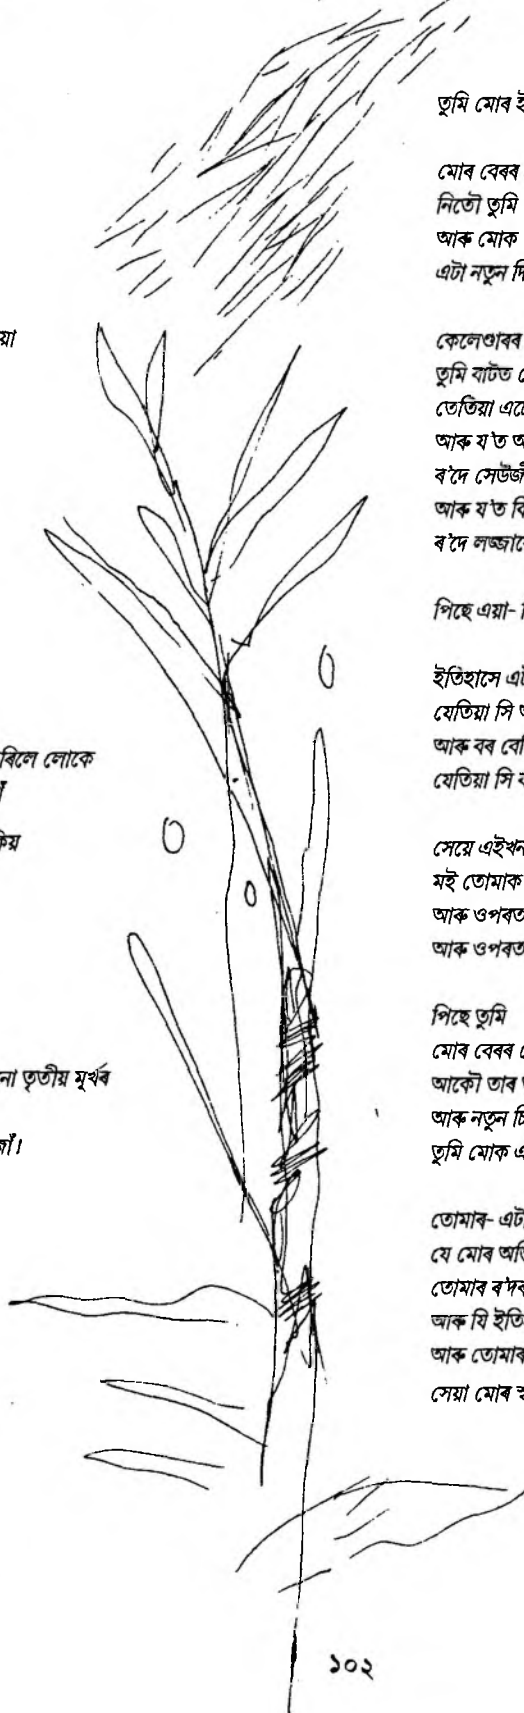 য়া
ৰিলে লোকে
কিয়
না তৃতীয় মূৰ্খৰ
জাঁ।
তুমি মোৰ ই
মোৰ বেৰৰ
নিতৌ তুমি
আৰু মোক
এটা নতুন দি
কেলেণ্ডাৰৰ
তুমি বাটত
তেতিয়া
আৰু য'ত
ৰ'দে
আৰু য'ত
ৰ'দে
পিছে এয়া-
ইতিহাসে
যেতিয়া সি
আৰু বৰ
যেতিয়া সি
সেয়ে এইখন
মই তোমাক
আৰু ওপৰত
আৰু ওপৰত
পিছে তুমি
মোৰ বেৰৰ
আকৌ তাৰ
আৰু নতুন
তুমি মোক
তোমাৰ- এটা
যে মোৰ
তোমাৰ ৰ'দৰ
আৰু যি
আৰু তোমাৰ
সেয়া মোৰ
১০২